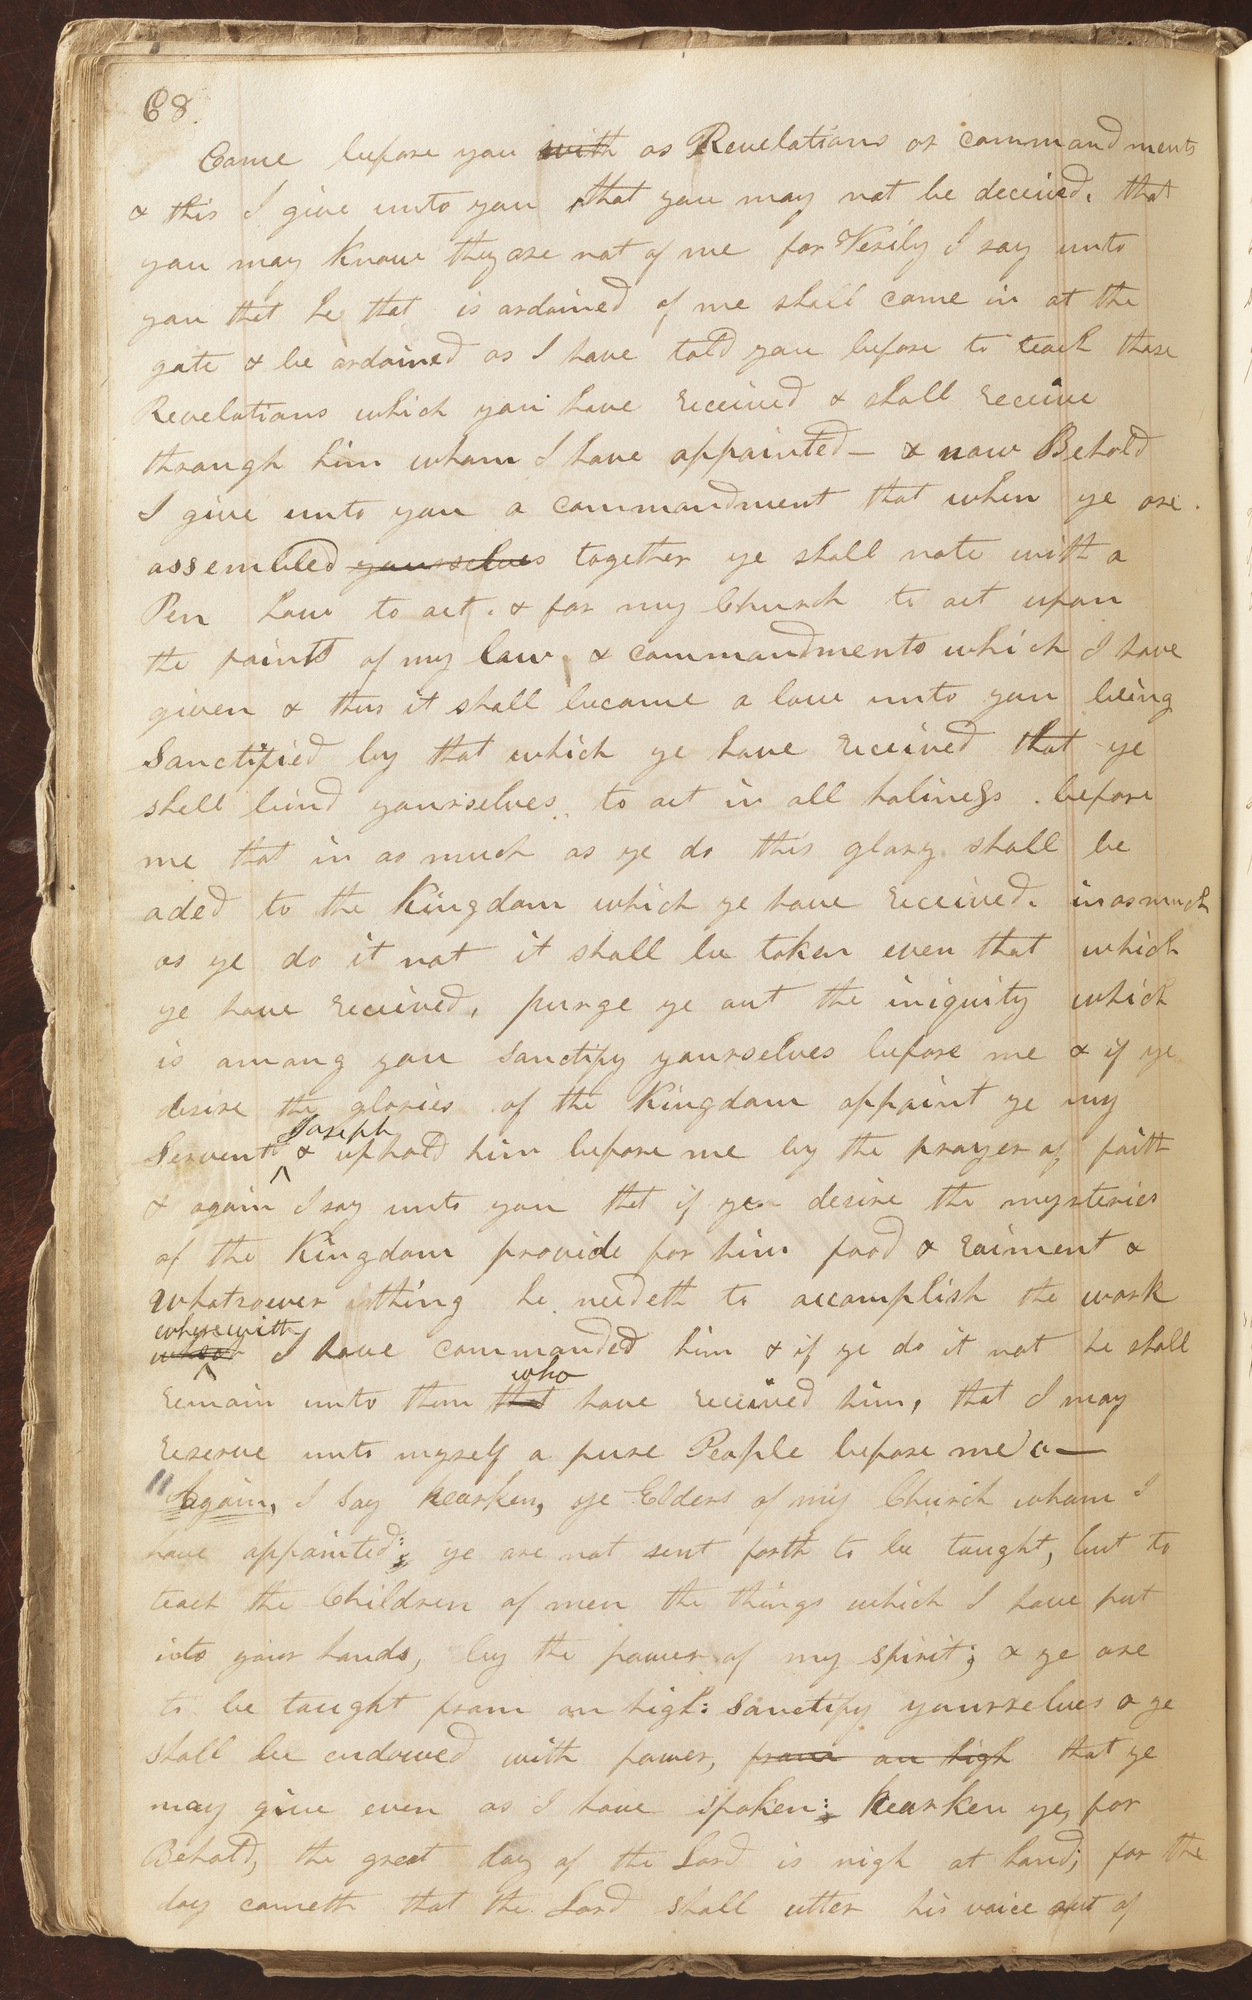 68.
Come before you with as Revelations or commandments
& this I give unto you that you may not be deceived. that
you may know they are not of me for Verily I say unto
you that he that is ordained of me shall come in at the
gate & be ordained as I have told you before to teach those
Revelations which you have received & shall receive
through him whom I have appointed— & now Behold
I give unto you a commandment that when ye are
assembled yourselves together ye shall note with a
Pen how to act. & for my Church to act upon
the points of my law & commandments which I have
given & thus it shall become a law unto you being
Sanctified by that which ye have received that ye
shall bind yourselves to act in all holiness before
me that in as much as ye do this glory shall be
aded to the Kingdom which ye have received. inasmuch
as ye do it not it shall be taken even that which
ye have received, purge ye out the iniquity which
is among you sanctify yourselves before me & if ye
desire the glories of the Kingdom appoint ye my
Joseph
Servent & uphold him before me by the prayer of faith
& again I say unto you that if ye desire the mysteries
of the Kingdom provide for him food & raiment &
Whatsoever thing he needeth to accomplish the work
wherewith
I have commanded him & if ye do it not he shall
who
remain unto them that have received him, that I may
reserve unto myself a pure People before me
" Again, I say hearken, ye Elders of my Church whom I
have appointed: ye are not sent forth to be taught, but to
teach the Children of men the things which I have put
into your hands, by the power of my spirit; & ye are
to be taught from on high: Sanctify yourselves & ye
shall be endowed with power, from on high that ye
may give even as I have spoken: hearken ye, for
Behold, the great day of the Lord is nigh at hand; for the
day cometh that the Lord shall utter his voice out of